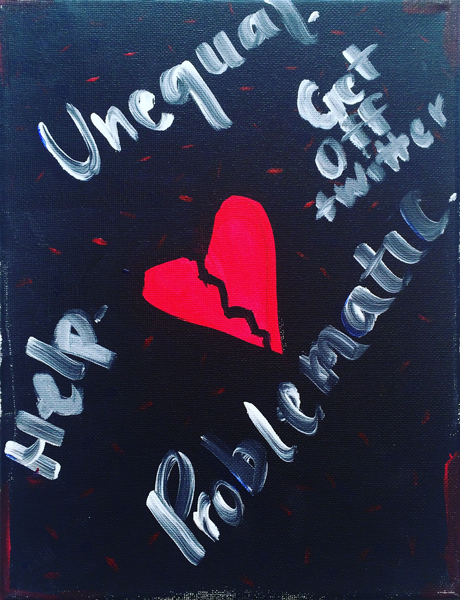 Unequal.
Get
Off
twitter
Help.
Problematic.